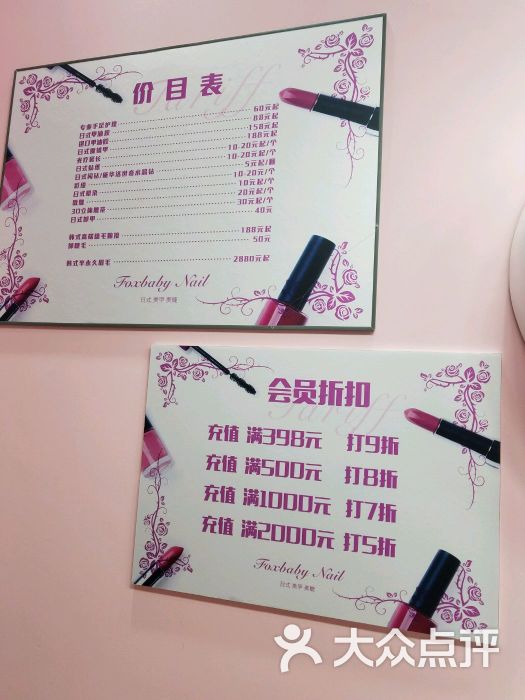 价目表
Tariff
专业手足护理 60元起
日式甲油胶 88元起
进口甲油胶 158元起
日式猫眼甲 188元起
光疗延长 10-20元/个
日式贴纸 10-20元/个
日式闪钻/豪华施洛世奇水晶钻 5元起/颗
彩绘 10-20元/个
日式晕染 10元起/个
20元/个
3D立体雕花 30元起/个
日式卸甲 40元
韩式高端睫毛嫁接 188元起
卸睫毛 50元
韩式半永久眉毛 2880元起
Foxbaby Nail
日式 美甲 美睫
会员折扣
Tariff
充值 满398元 打9折
充值 满500元 打8折
充值 满1000元 打7折
充值 满2000元 打5折
Foxbaby Nail
日式 美甲 美睫
大众点评